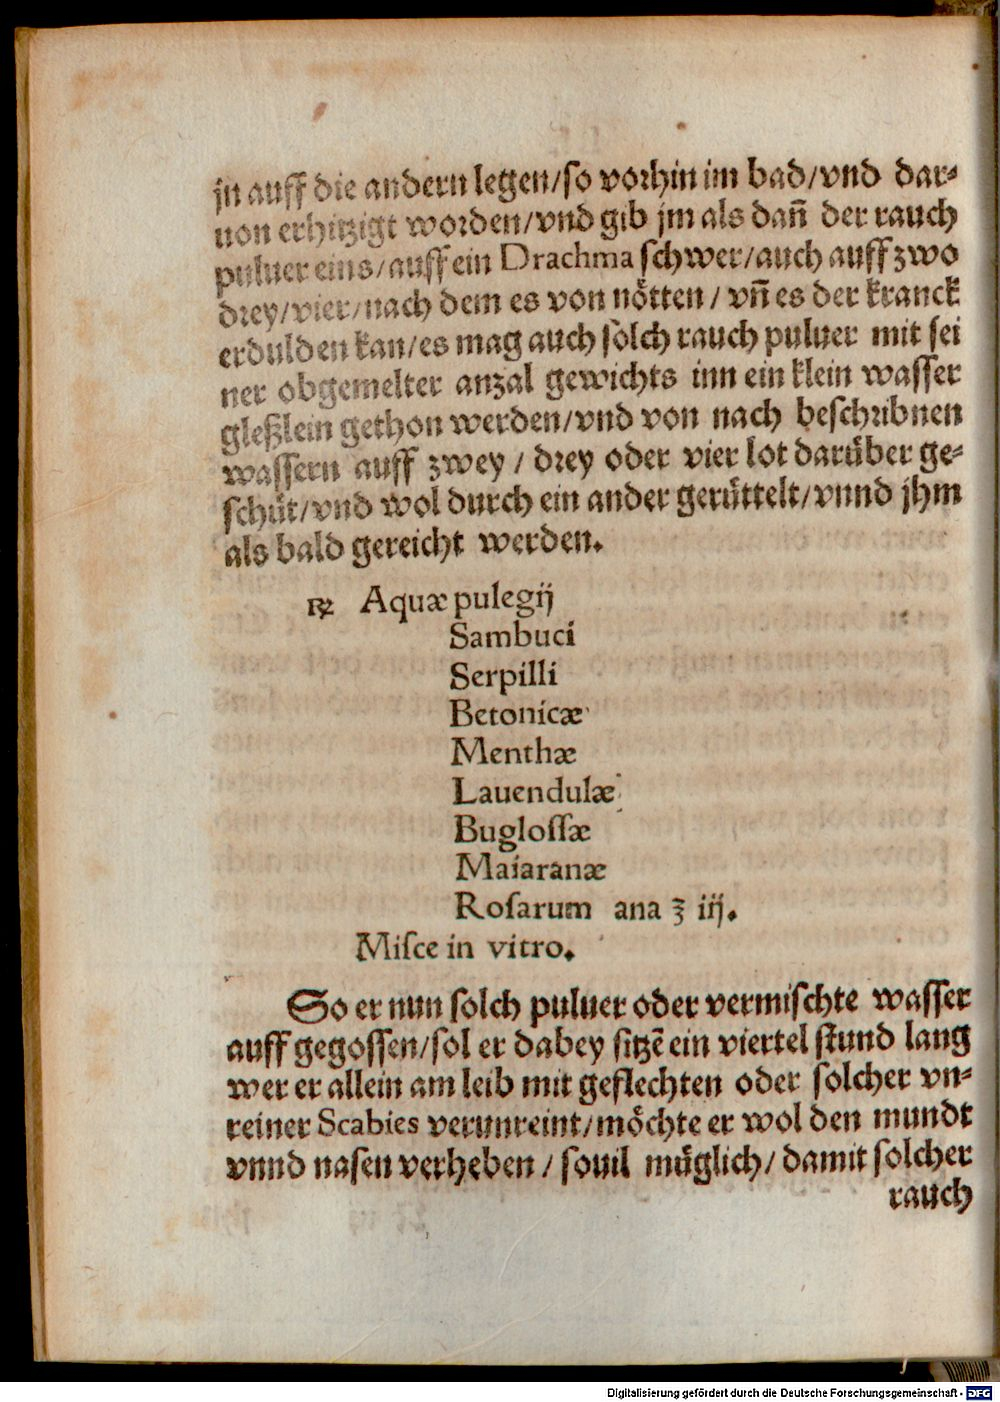 jn auff die andern legen/so vorhin im bad/vnd dar-
uon erhitzigt worden/vnd gib jm als dañ der rauch
puluer eins/auff ein Drachma schwer/auch auff zwo
drey/vier/nach dem es von nötten/ vñ es der kranck
erdulden kan/es mag auch solch rauch puluer mit sei
ner obgemelter anzal gewichts inn ein klein wasser
gleßlein gethon werden/vnd von nach beschribnen
wassern auff zwey / drey oder vier lot darüber ge-
schüt/vnd wol durch ein ander gerüttelt/vnnd jhm
als bald gereicht werden.
℞ Aquæ pulegij
Sambuci
Serpilli
Betonicæ
Menthæ
Lauendulæ
Buglossæ
Maiaranæ
Rosarum ana ℥ iij.
Misce in vitro.
So er nun solch puluer oder vermischte wasser
auff gegossen/sol er dabey sitzē ein viertel stund lang
wer er allein am leib mit geflechten oder solcher vn-
reiner Scabies verunreint/möchte er wol den mundt
vnnd nasen verheben / souil müglich/ damit solcher
rauch
Digitalisierung gefördert durch die Deutsche Forschungsgemeinschaft - DFG